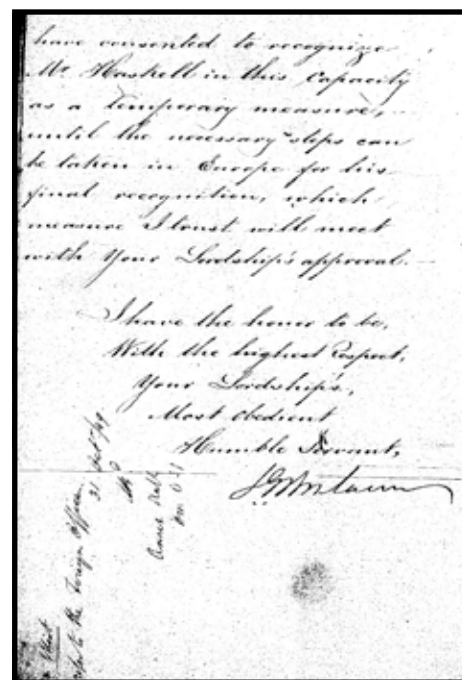 have consented to recognize
Mr Haskell in this capacity
as a temporary measure,
until the necessary steps can
be taken in Europe for his
final recognition, which
measure I trust will meet
with Your Lordship's approval.
I have the honor to be,
With the highest respect,
Your Lordship's,
Most obedient
Humble Servant,
to the Foreign Office